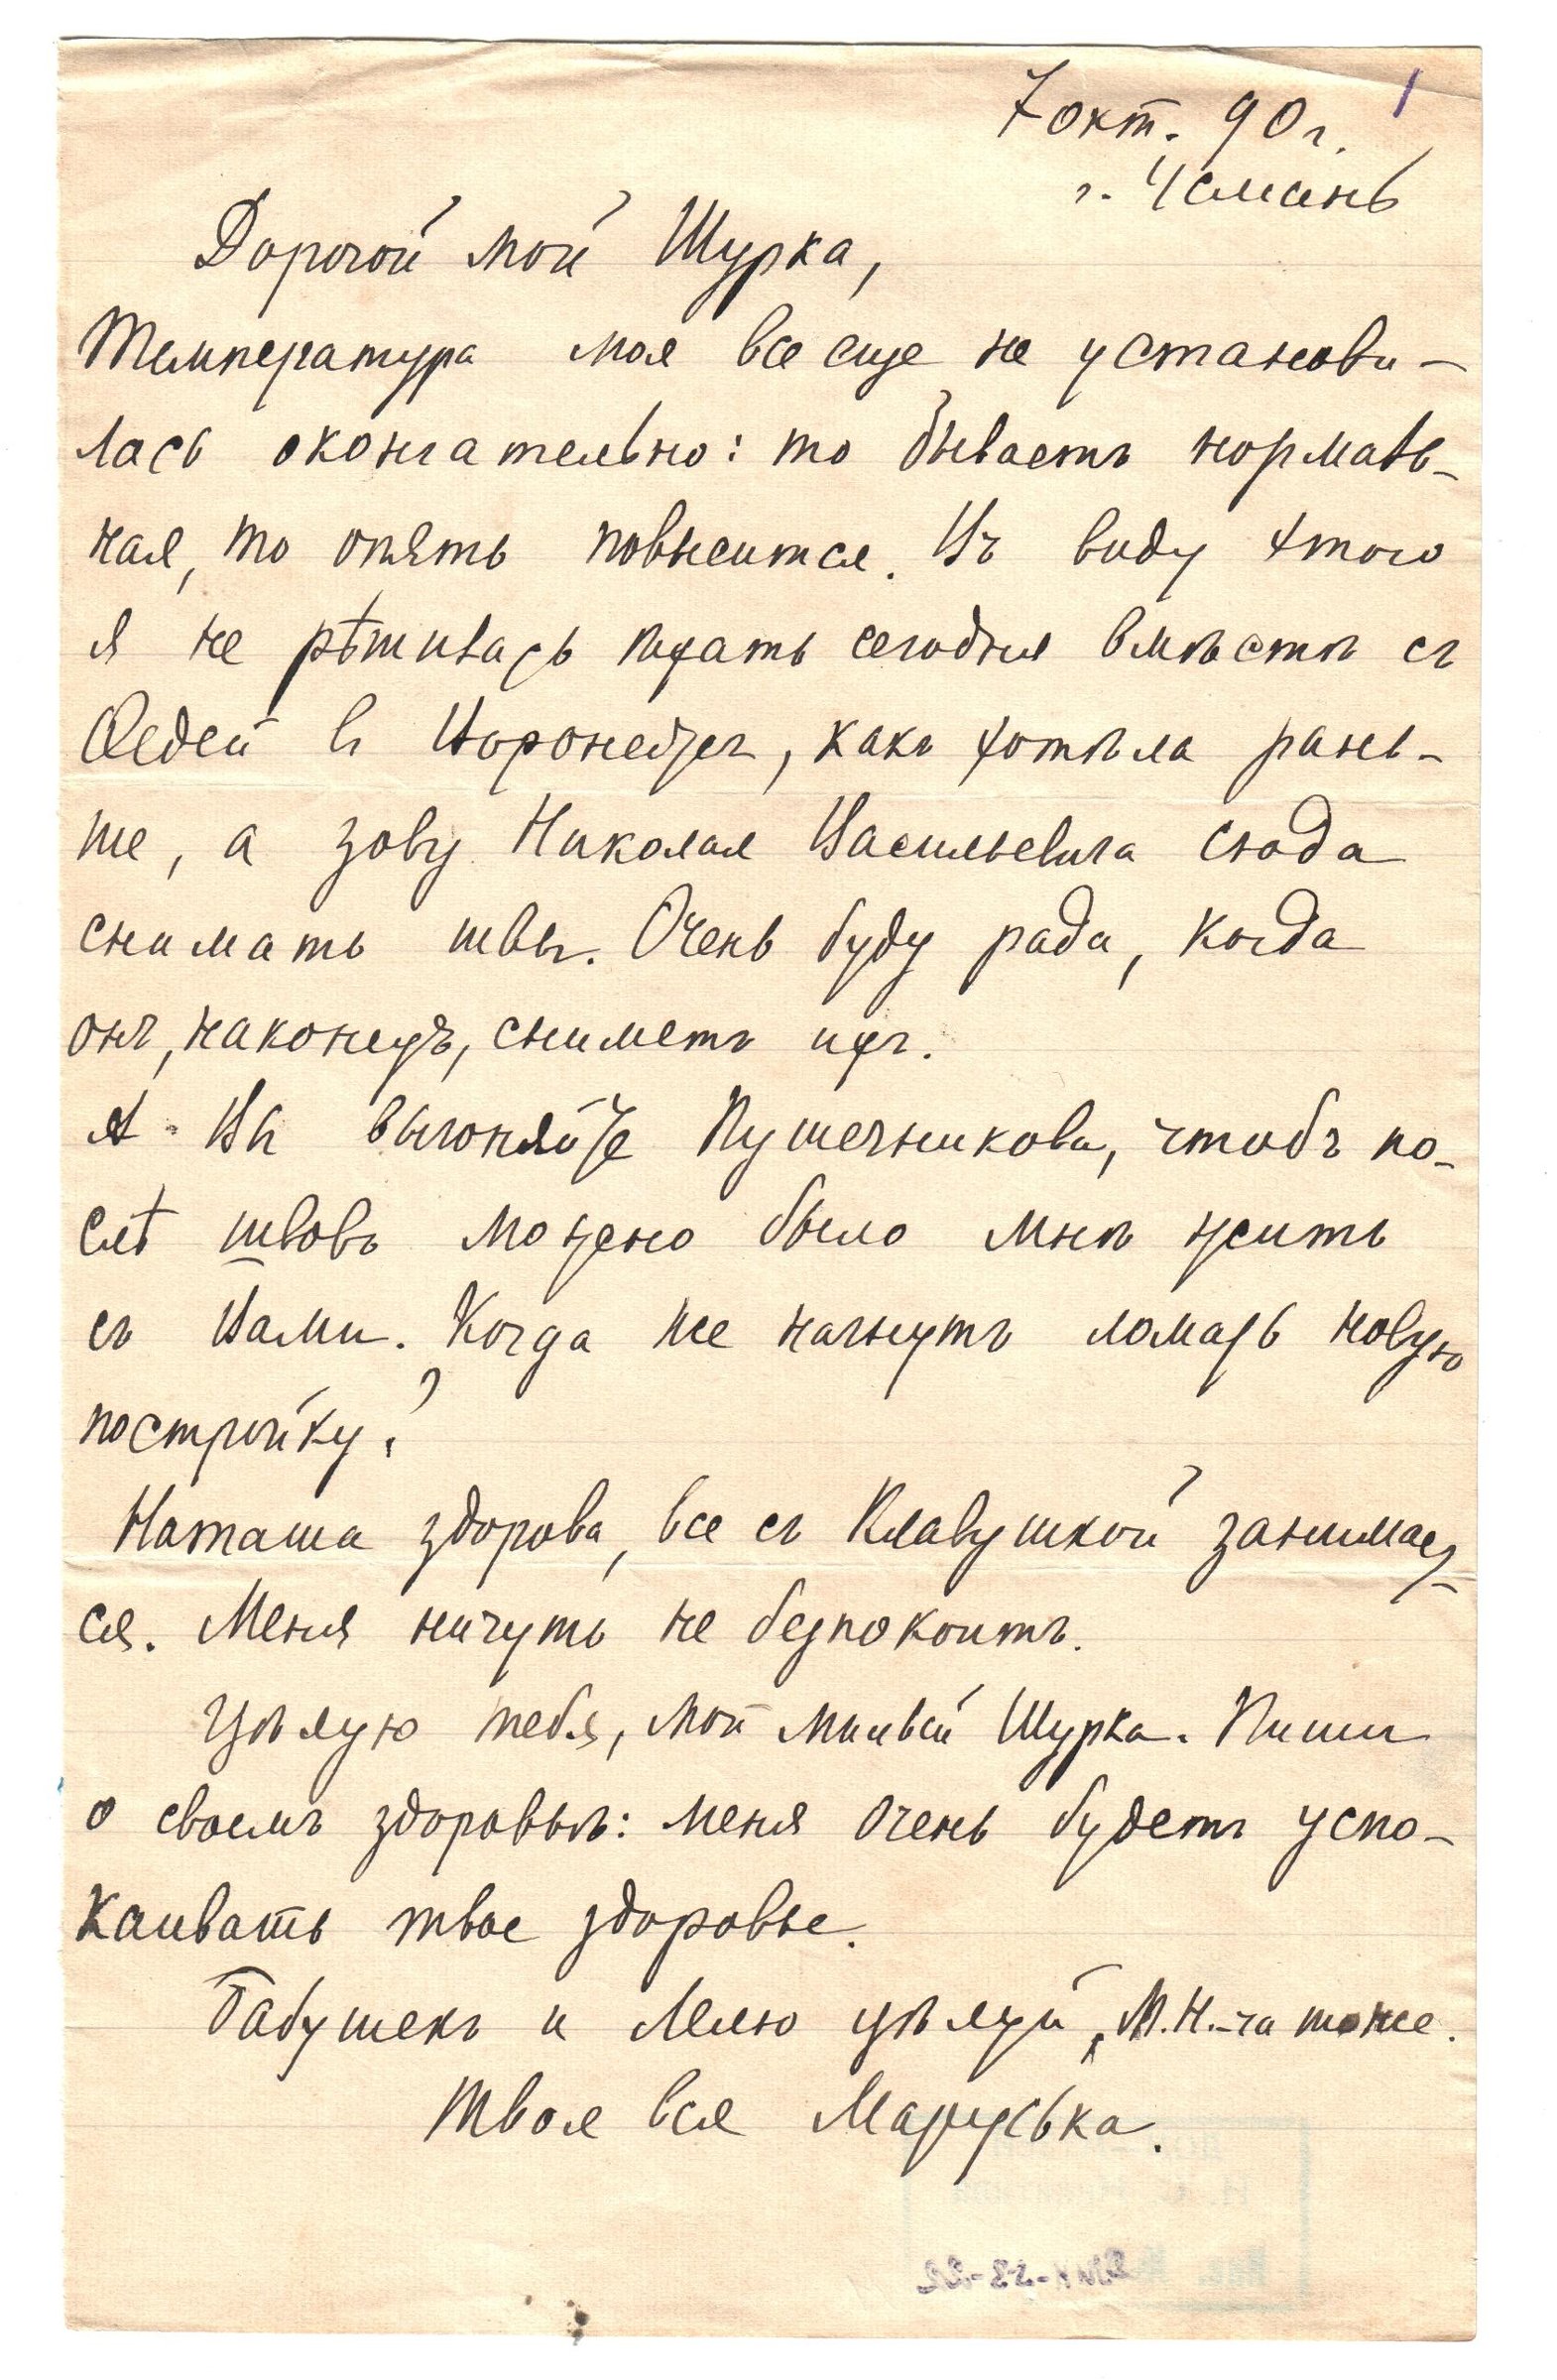 7 окт. 90 г.
г. Усмань
Дорогой мой Шурка,
Температура моя все еще не установи-
лась окончательно: то бываетъ нормаль-
ная, то опять повысится. Въ виду этого
я не рѣшилась ѣхать сегодня вмѣстѣ съ
Ѳедей въ Воронежъ, какъ хотѣла рань-
ше, а зову Николая Васильевича сюда
снимать швы. Очень буду рада, когда
онъ, наконецъ, сниметъ ихъ.
А Вы выгоняйте Пушечникова, чтобъ по-
слѣ швовъ можно было мнѣ жить
съ Вами. Когда же начнутъ ломать новую
постройку?
Наташа здорова, все съ Клавушкой занимает-
ся. Меня ничуть не безпокоитъ.
Цѣлую тебя, мой милый Шурка. Пиши
о своемъ здоровьѣ: меня очень будетъ успо-
каивать твое здоровье.
Бабушекъ и Лелю цѣлуй, М.Н.-ча тоже.
Твоя вся Маруська.